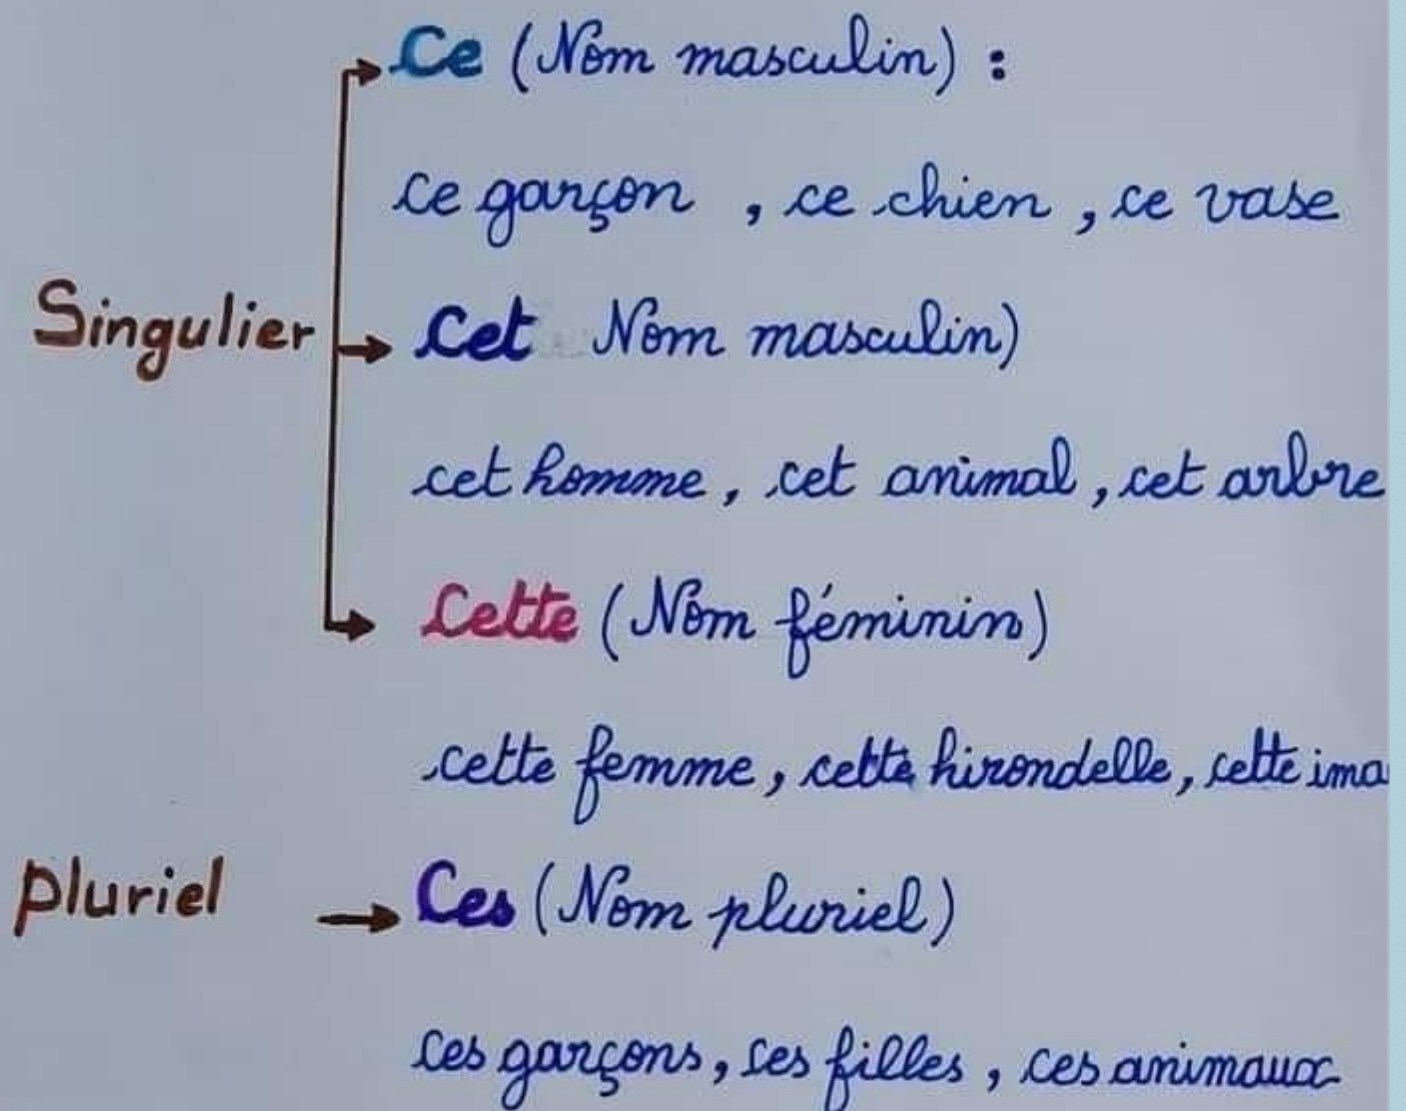 Ce (Nom masculin) :
ce garçon , ce chien , ce vase
Singulier
Cet Nom masculin)
cet homme, cet animal, cet arbre
Cette (Nom féminin)
cette femme, cette hirondelle, cette ima
pluriel
Ces (Nom pluriel)
ces garçons, ces filles, ces animaux